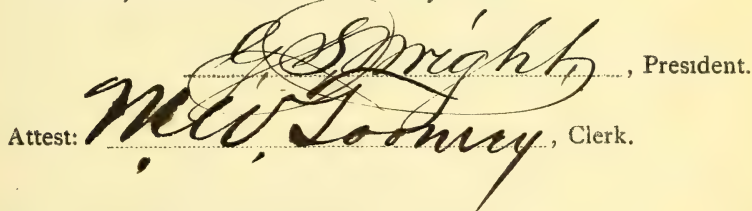 G S Wright, President.
Attest: M. W. Toomey, Clerk.